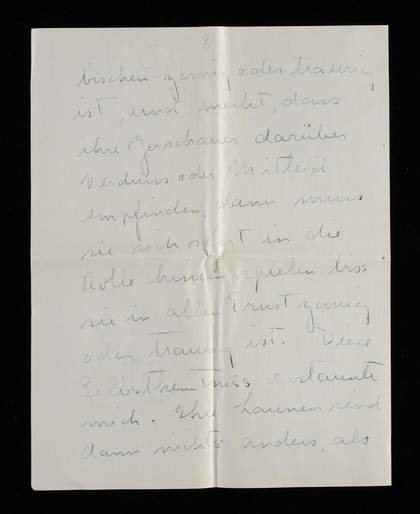 8
bischen zornig oder traurig
ist, und merkt, dass
ihre Zuschauer darüber
Verdruss oder Mitleid
empfinden, dann muss
sie sich sofort in die
Rolle hineinspielen biss
sie in allen Ernst zornig
oder traurig ist. Diese
Selbstkenntniss erstaunte
mich. Ihre Launen sind
dann nichts anders, als